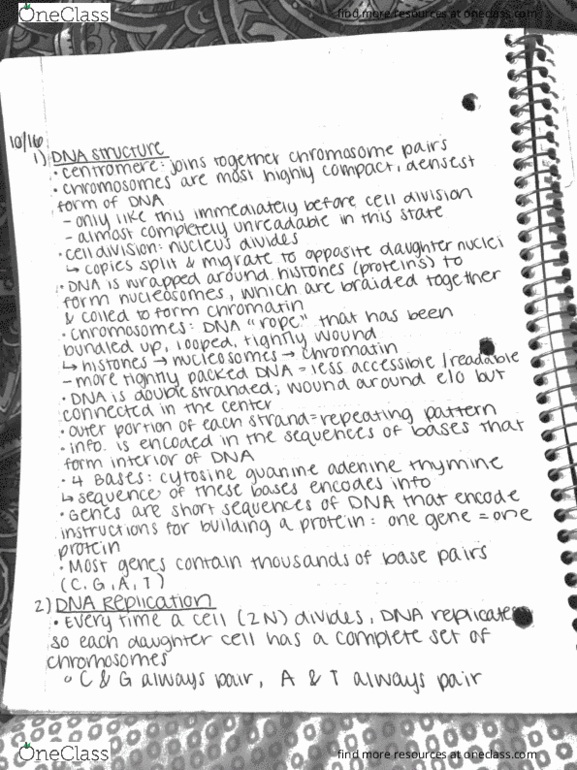 OneClass
find more resources at oneclass.com
10/16
1) DNA structure
• centromere: joins together chromosome pairs
• chromosomes are most highly compact, densest
form of DNA
- only like this immediately before cell division
- almost completely unreadable in this state
• cell division: nucleus divides
↳ copies split & migrate to opposite daughter nuclei
• DNA is wrapped around histones (proteins) to
form nucleosomes, which are braided together
& coiled to form chromatin
• chromosomes: DNA "rope" that has been
bundled up, looped, tightly wound
↳ histones → nucleosomes → chromatin
- more tightly packed DNA = less accessible/readable
• DNA is double stranded; wound around e/o but
connected in the center
• outer portion of each strand = repeating pattern
• info. is encoded in the sequences of bases that
form interior of DNA
• 4 Bases: cytosine guanine adenine thymine
↳ sequence of these bases encodes info
• Genes are short sequences of DNA that encode
instructions for building a protein: one gene = one
protein
• Most genes contain thousands of base pairs
(C, G, A, T)
2) DNA Replication
• Every time a cell (2N) divides, DNA replicates
so each daughter cell has a complete set of
chromosomes
◦ C & G always pair, A & T always pair
OneClass
find more resources at oneclass.com